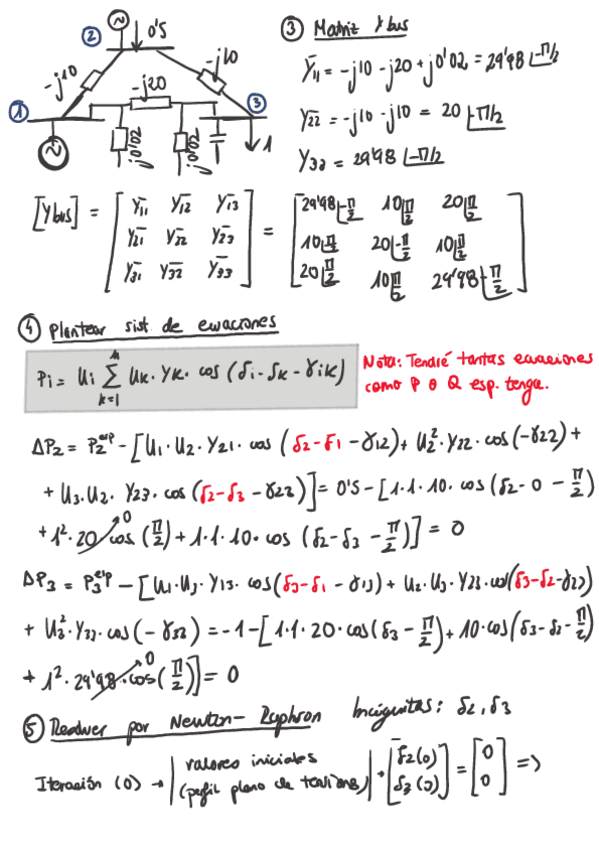 ② ~ 0'5
-j10
-j20
-j10
① ③
~ j0'02 j0'02 1
③ Matriz Y bus
Y̅11 = -j10 -j20 + j0'02 = 29'98 ∟-π/2
Y̅22 = -j10 -j10 = 20 ∟-π/2
Y33 = 29'98 ∟-π/2
[Ybus] = [Y̅11 Y̅12 Y̅13 = [29'98∟-π/2 10∟π/2 20∟π/2
Y̅21 Y̅22 Y̅23 10∟π/2 20∟-π/2 10∟π/2
Y̅31 Y̅32 Y̅33] 20∟π/2 10∟π/2 29'98∟-π/2]
④ Plantear sist. de ecuaciones
Pi = Ui Σ(k=1, n) UK · YK · cos (δi - δK - γiK)
Nota: Tendré tantas ecuaciones
como P o Q esp. tenga.
ΔP2 = P2^esp - [U1 · U2 · Y21 · cos (δ2 - δ1 - γ12) + U2² · Y22 · cos(-γ22) +
+ U3 · U2 · Y23 · cos (δ2 - δ3 - γ23)] = 0'5 - [1·1·10 · cos (δ2 - 0 - π/2)
+ 1² · 20 cos (π/2) 0 + 1·1·10 · cos (δ2 - δ3 - π/2)] = 0
ΔP3 = P3^esp - [U1 · U3 · Y13 · cos(δ3 - δ1 - γ13) + U2 · U3 · Y23 · cos(δ3 - δ2 - γ23)
+ U3² · Y33 · cos (-γ33) = -1 - [1·1·20 · cos(δ3 - π/2) + 10 · cos(δ3 - δ2 - π/2)
+ 1² · 29'98 · cos(π/2) 0] = 0
⑤ Resolver por Newton - Raphson Incógnitas: δ2, δ3
Iteración (0) → | valores iniciales | → [δ2(0) = [0 =>
(perfil plano de tensiones) δ3(0)] 0]